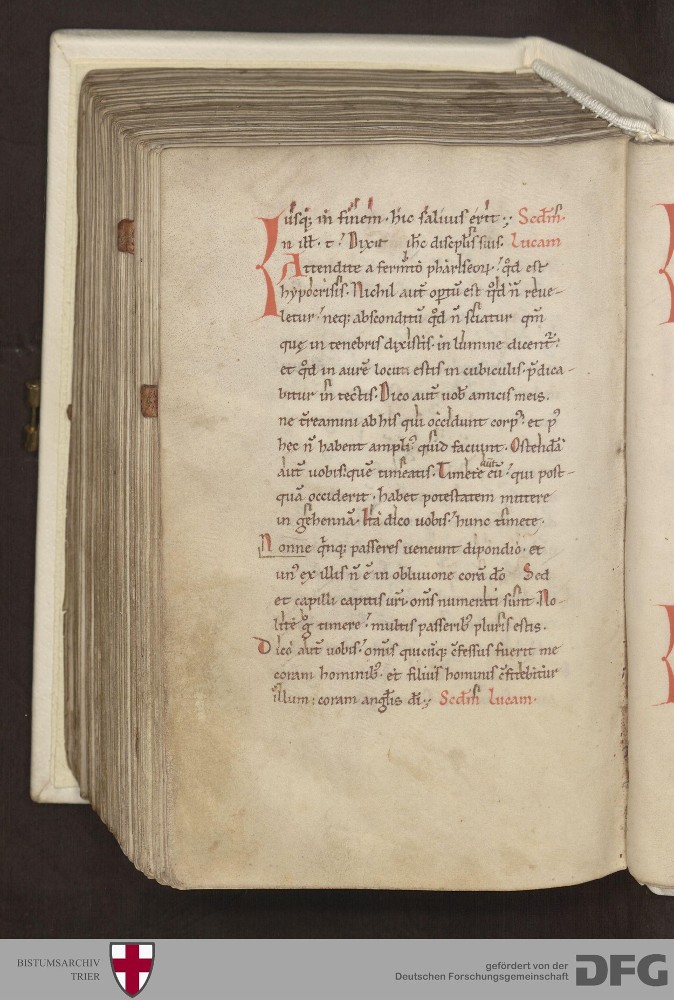 usq; in finem. hic saluus erit. Scdm.
In ill. t. Dixit ihc discplis suis. Lucam
Attendite a fermto phariseoꝝ. qd est
hypocrisis. Nichil aut optu est qd n reue-
letur. neq; absconditu qd n sciatur qm
que in tenebris dixistis. in lumine dicent.
et qd in aure locuti estis in cubiculis. pdica-
bitur in tectis. Dico aut uob amicis meis.
ne treamini ab his qui occidunt corp⁹. et p⁹
hec n habent ampli⁹ quid faciunt. Ostenda
aut uobis que timeatis. Timete aut eu. qui post-
qua occiderit. habet potestatem mittere
in gehenna. Ita dico uobis. hunc timete.
Nonne qnq; passeres ueneunt dipondio. et
un⁹ ex illis n e in obliuione cora do Sed
et capilli capitis uri. oms numerati sunt. No-
lite g timere. multis passerib; pluris estis.
Dico aut uobis. omis quicuq; cfessus fuerit me
coram hominib;. et filius hominis cfitebitur
illum: coram anglis di. Scdm lucam.
BISTUMSARCHIV
TRIER
gefördert von der
Deutschen Forschungsgemeinschaft
DFG